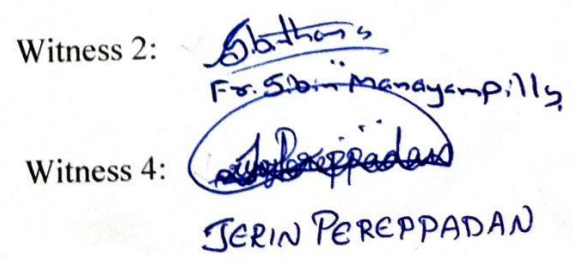 Witness 2:
Fr. Sibin Manayampilly
Witness 4:
JERIN PEREPPADAN